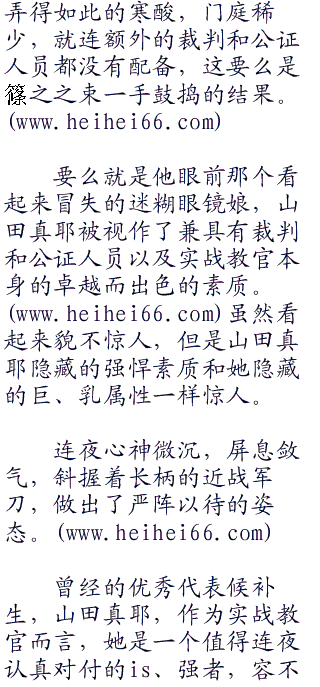 弄得如此的寒酸，门庭稀
少，就连额外的裁判和公证
人员都没有配备，这要么是
篠之之束一手鼓捣的结果。
(www.heihei66.com)
要么就是他眼前那个看
起来冒失的迷糊眼镜娘，山
田真耶被视作了兼具有裁判
和公证人员以及实战教官本
身的卓越而出色的素质。
(www.heihei66.com)虽然看
起来貌不惊人，但是山田真
耶隐藏的强悍素质和她隐藏
的巨、乳属性一样惊人。
连夜心神微沉，屏息敛
气，斜握着长柄的近战军
刀，做出了严阵以待的姿
态。(www.heihei66.com)
曾经的优秀代表候补
生，山田真耶，作为实战教
官而言，她是一个值得连夜
认真对付的is、强者，容不